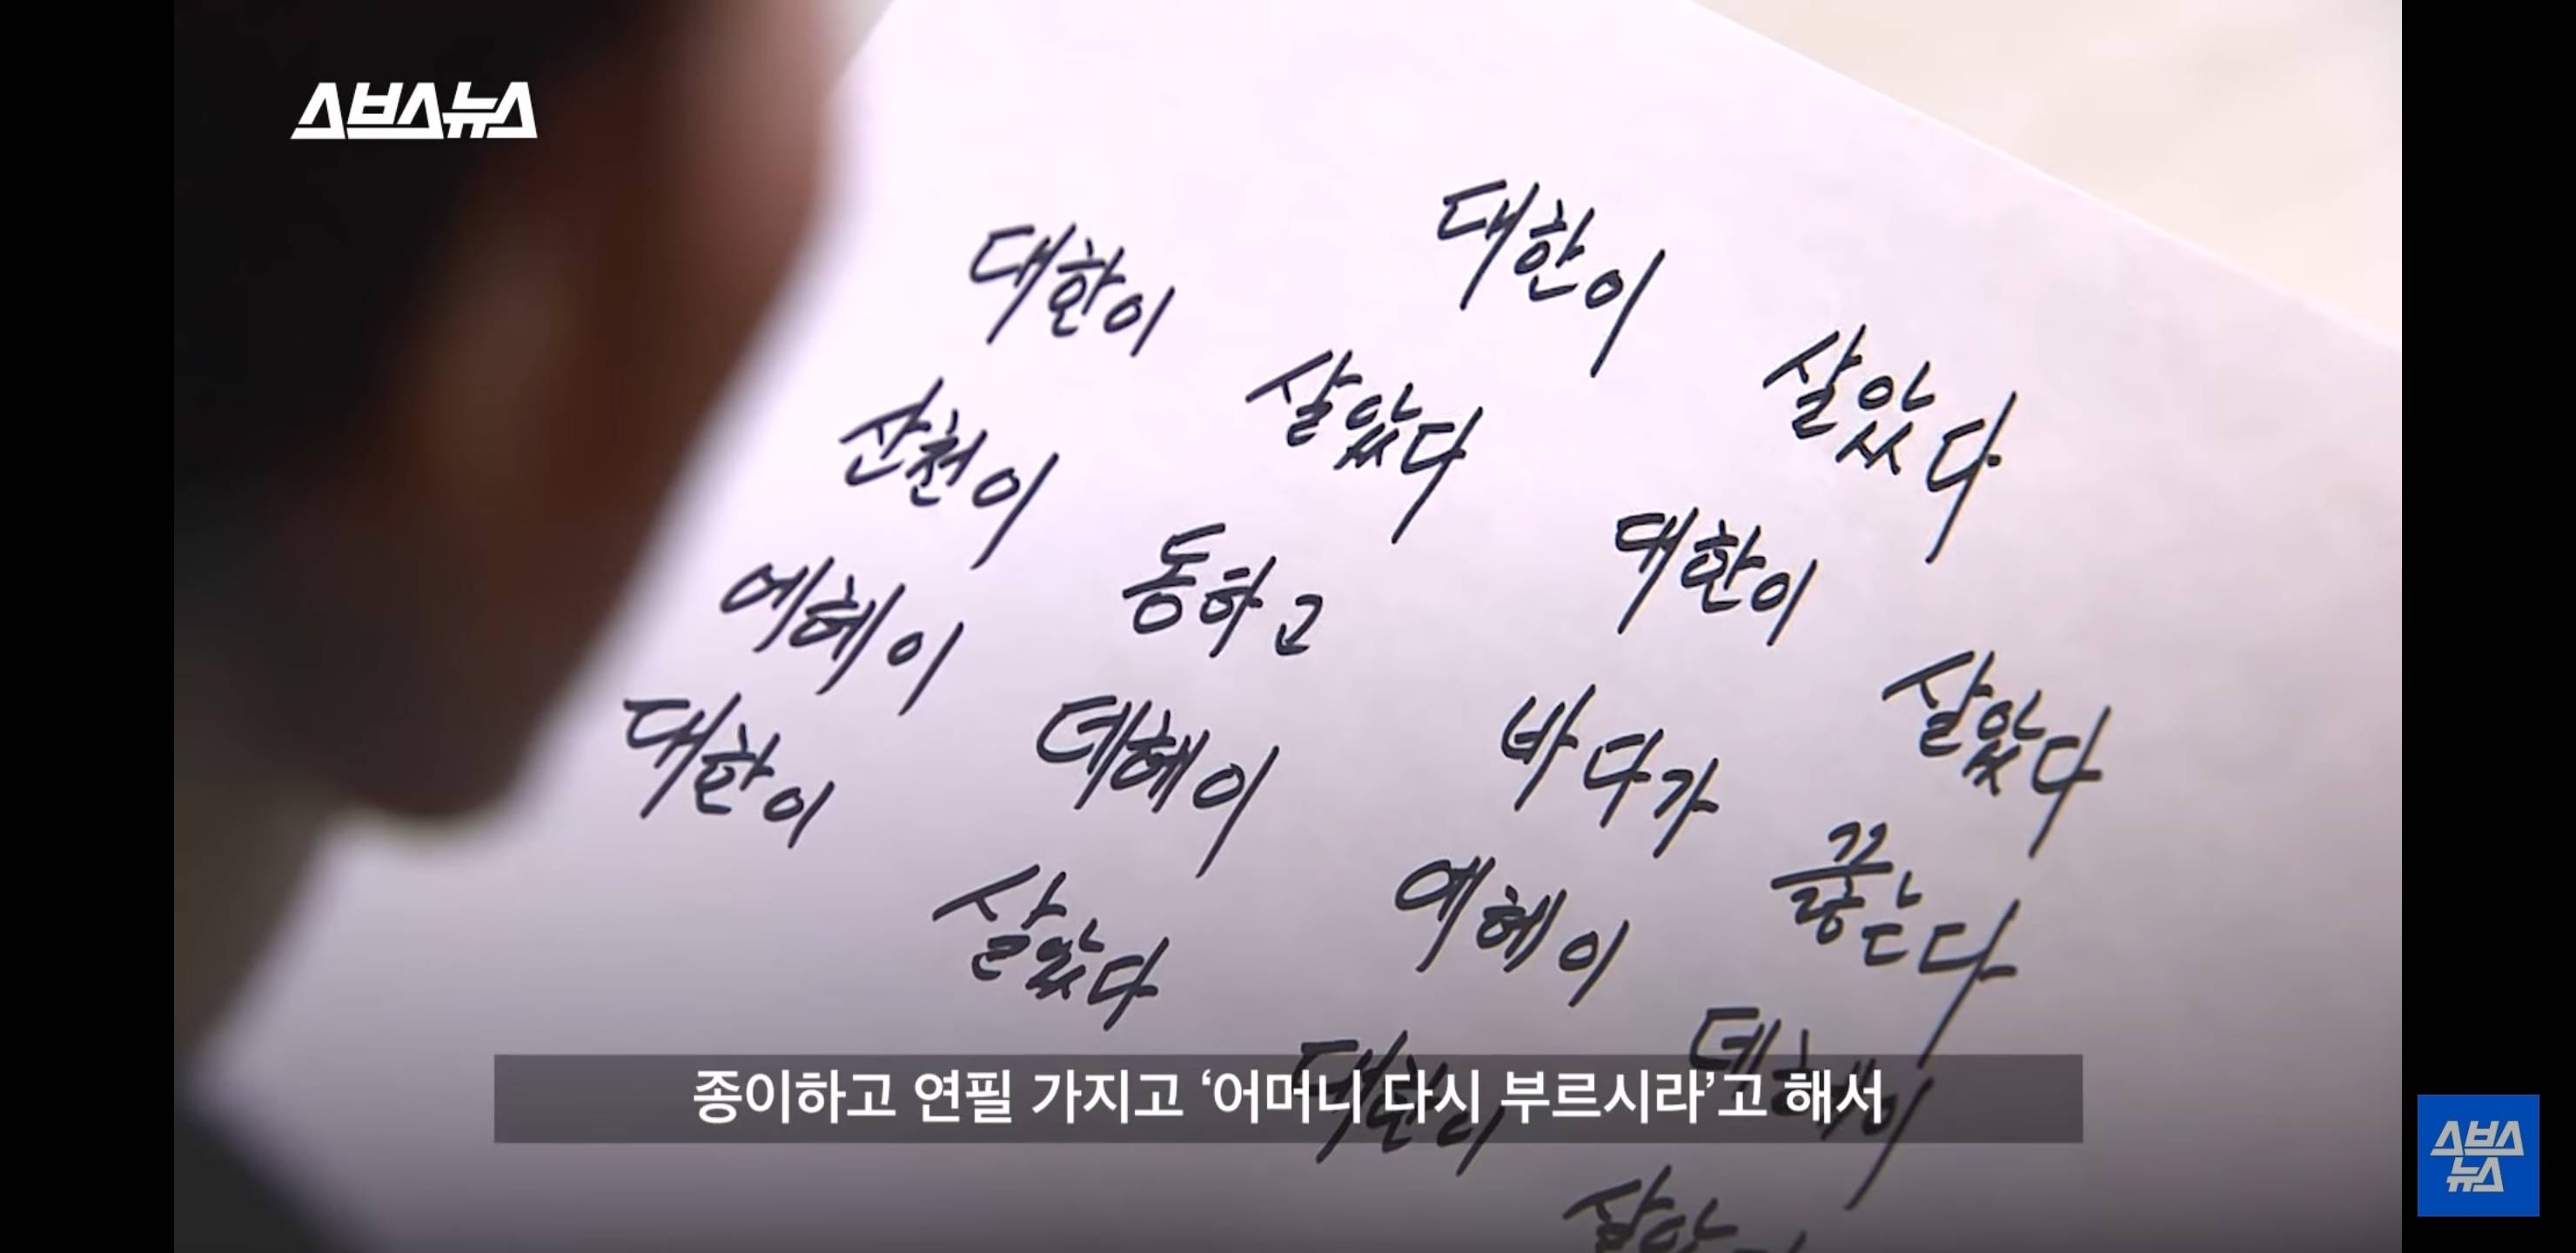 스브스뉴스
대한이 살았다
대한이 살았다 대한이 살았다
산천이 동하고 바다가 끓는다
에헤이 데헤이 에헤이 데헤이
대한이 살았다 대한이
종이하고 연필 가지고 ‘어머니 다시 부르시라’고 해서
스브스
뉴스